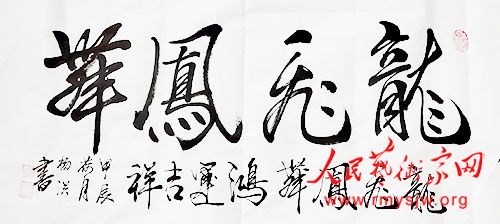 龍飛鳳舞
龍飛鳳舞鴻運吉祥
甲辰
荷月
書
人民藝術家网
www.rmysjw.org